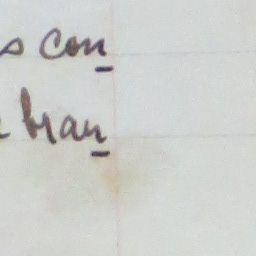 s con
bran